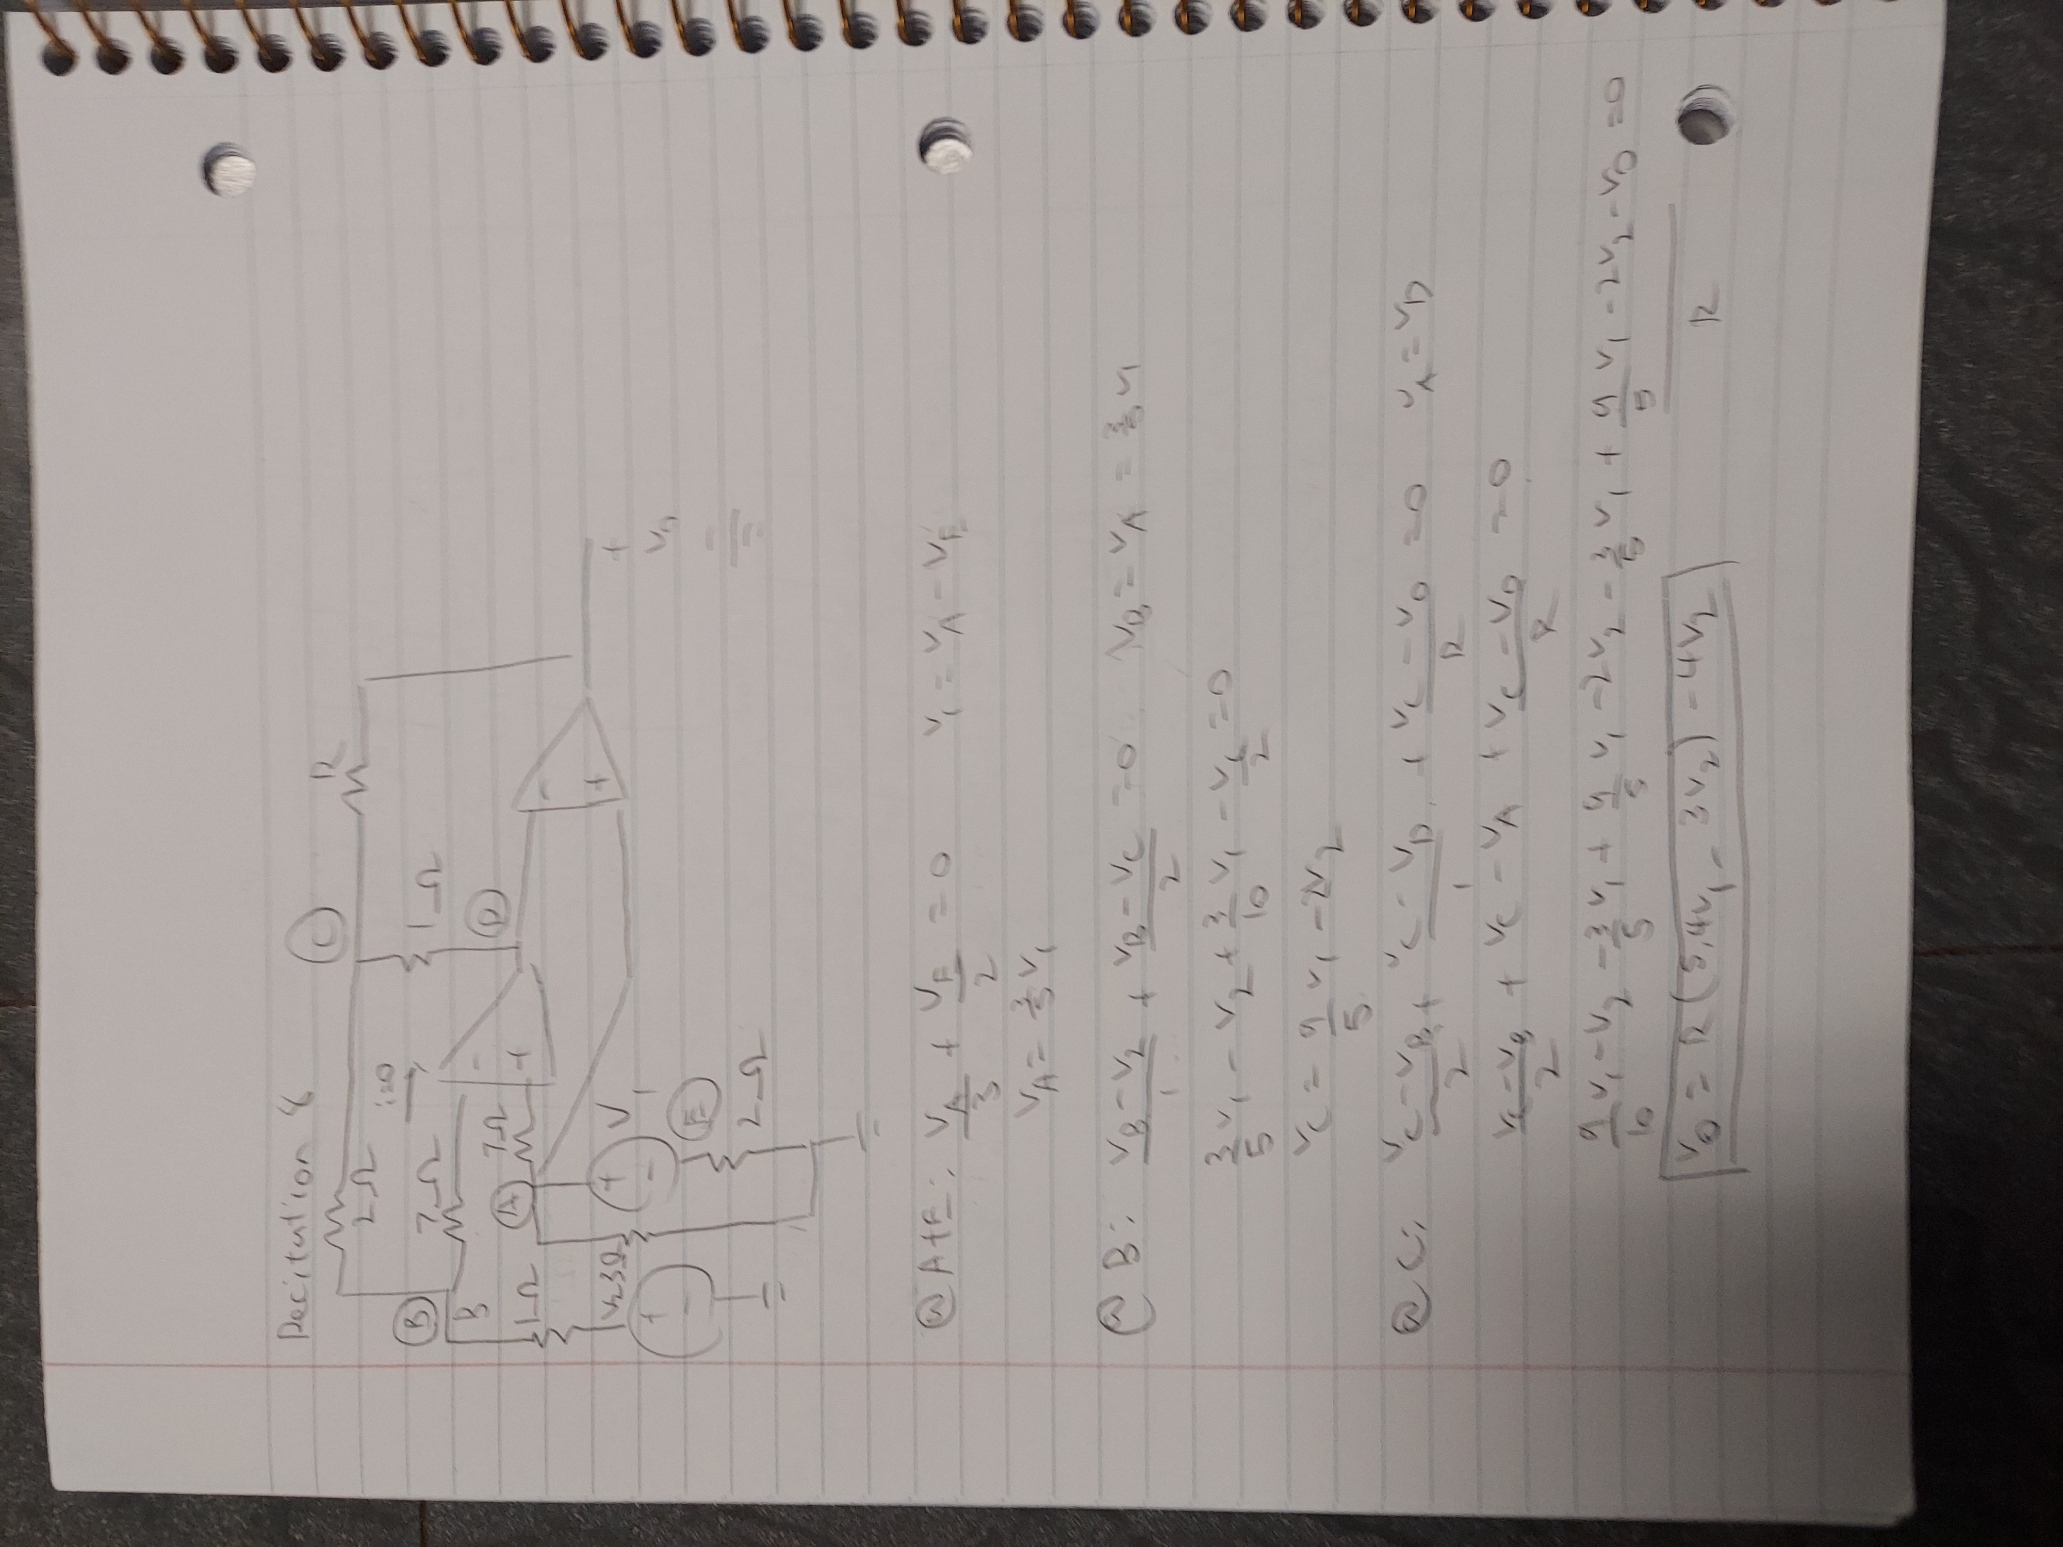 Recitation 8
C
R
2Ω
i=0
B
7Ω
1Ω
B
D
A
7Ω
-
+
1Ω
-
+
V2 3Ω
+
-
V1
+
-
+
Vo
-
E
2Ω
@ A+E: VA/3 + VE/2 = 0 V1 = VA - VE
VA = 3/5 V1
@ B: (VB - V2)/1 + (VB - VC)/2 = 0 VB = VA = 3/5 V1
3/5 V1 - V2 + 3/10 V1 - VC/2 = 0
VC = 9/5 V1 - 2V2
@ C: (VC - VB)/2 + (VC - VD)/1 + (VC - VO)/R = 0 VA = VD
(VC - VB)/2 + VC - VA + (VC - VO)/R = 0
9/10 V1 - V2 - 3/5 V1 + 9/5 V1 - 2V2 - 3/5 V1 + (9/5 V1 - 2V2 - VO)/R = 0
VO = R(5.4V1 - 3V2) - 4V2